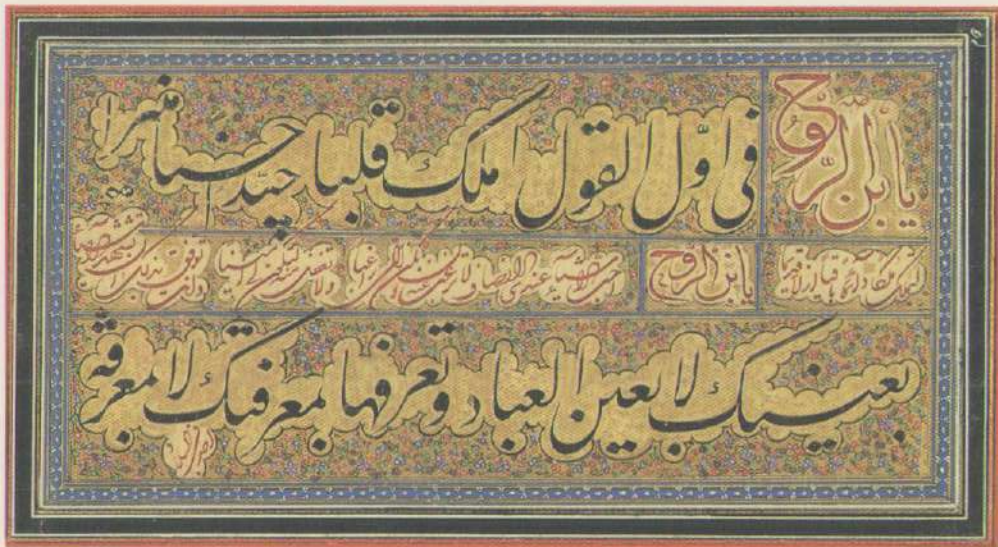 يا ابن الرّوح
في اوّل القول املك قلبا جيّدا حسنا منيرا
لتملك ملكا دائما باقيا ازلا قديما
يا ابن الروح
احبّ الاشياء عندي الانصاف لا ترغب عنه ان تكن اليّ راغبا ولا تغفل منه لتكون لي امينا وانت توفق بذلك ان تشاهد الاشياء
بعينك لا بعين العباد و تعرفها بمعرفتك لا بمعرفة